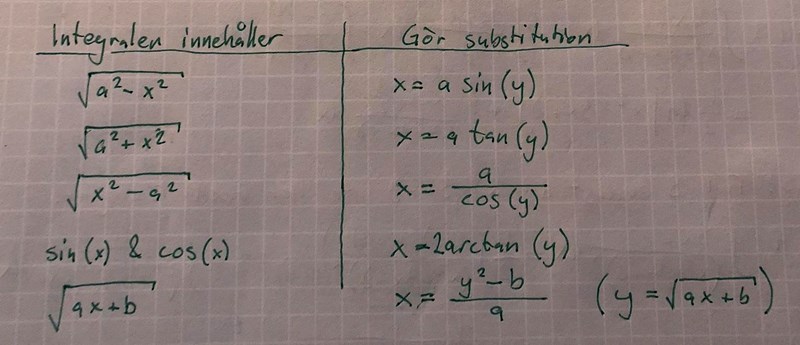 Integralen innehåller Gör substitution
√(a² - x²) x = a sin(y)
√(a² + x²) x = a tan(y)
√(x² - a²) x = a/cos(y)
sin(x) & cos(x) x = 2arctan(y)
√(ax+b) x = (y² - b)/a (y = √(ax+b))